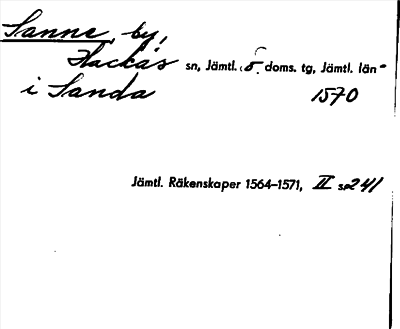 Sanne, by,
Hackås sn, Jämtl. 5. doms. tg, Jämtl. län
i Sanda 1570
Jämtl. Räkenskaper 1564–1571, II s. 241